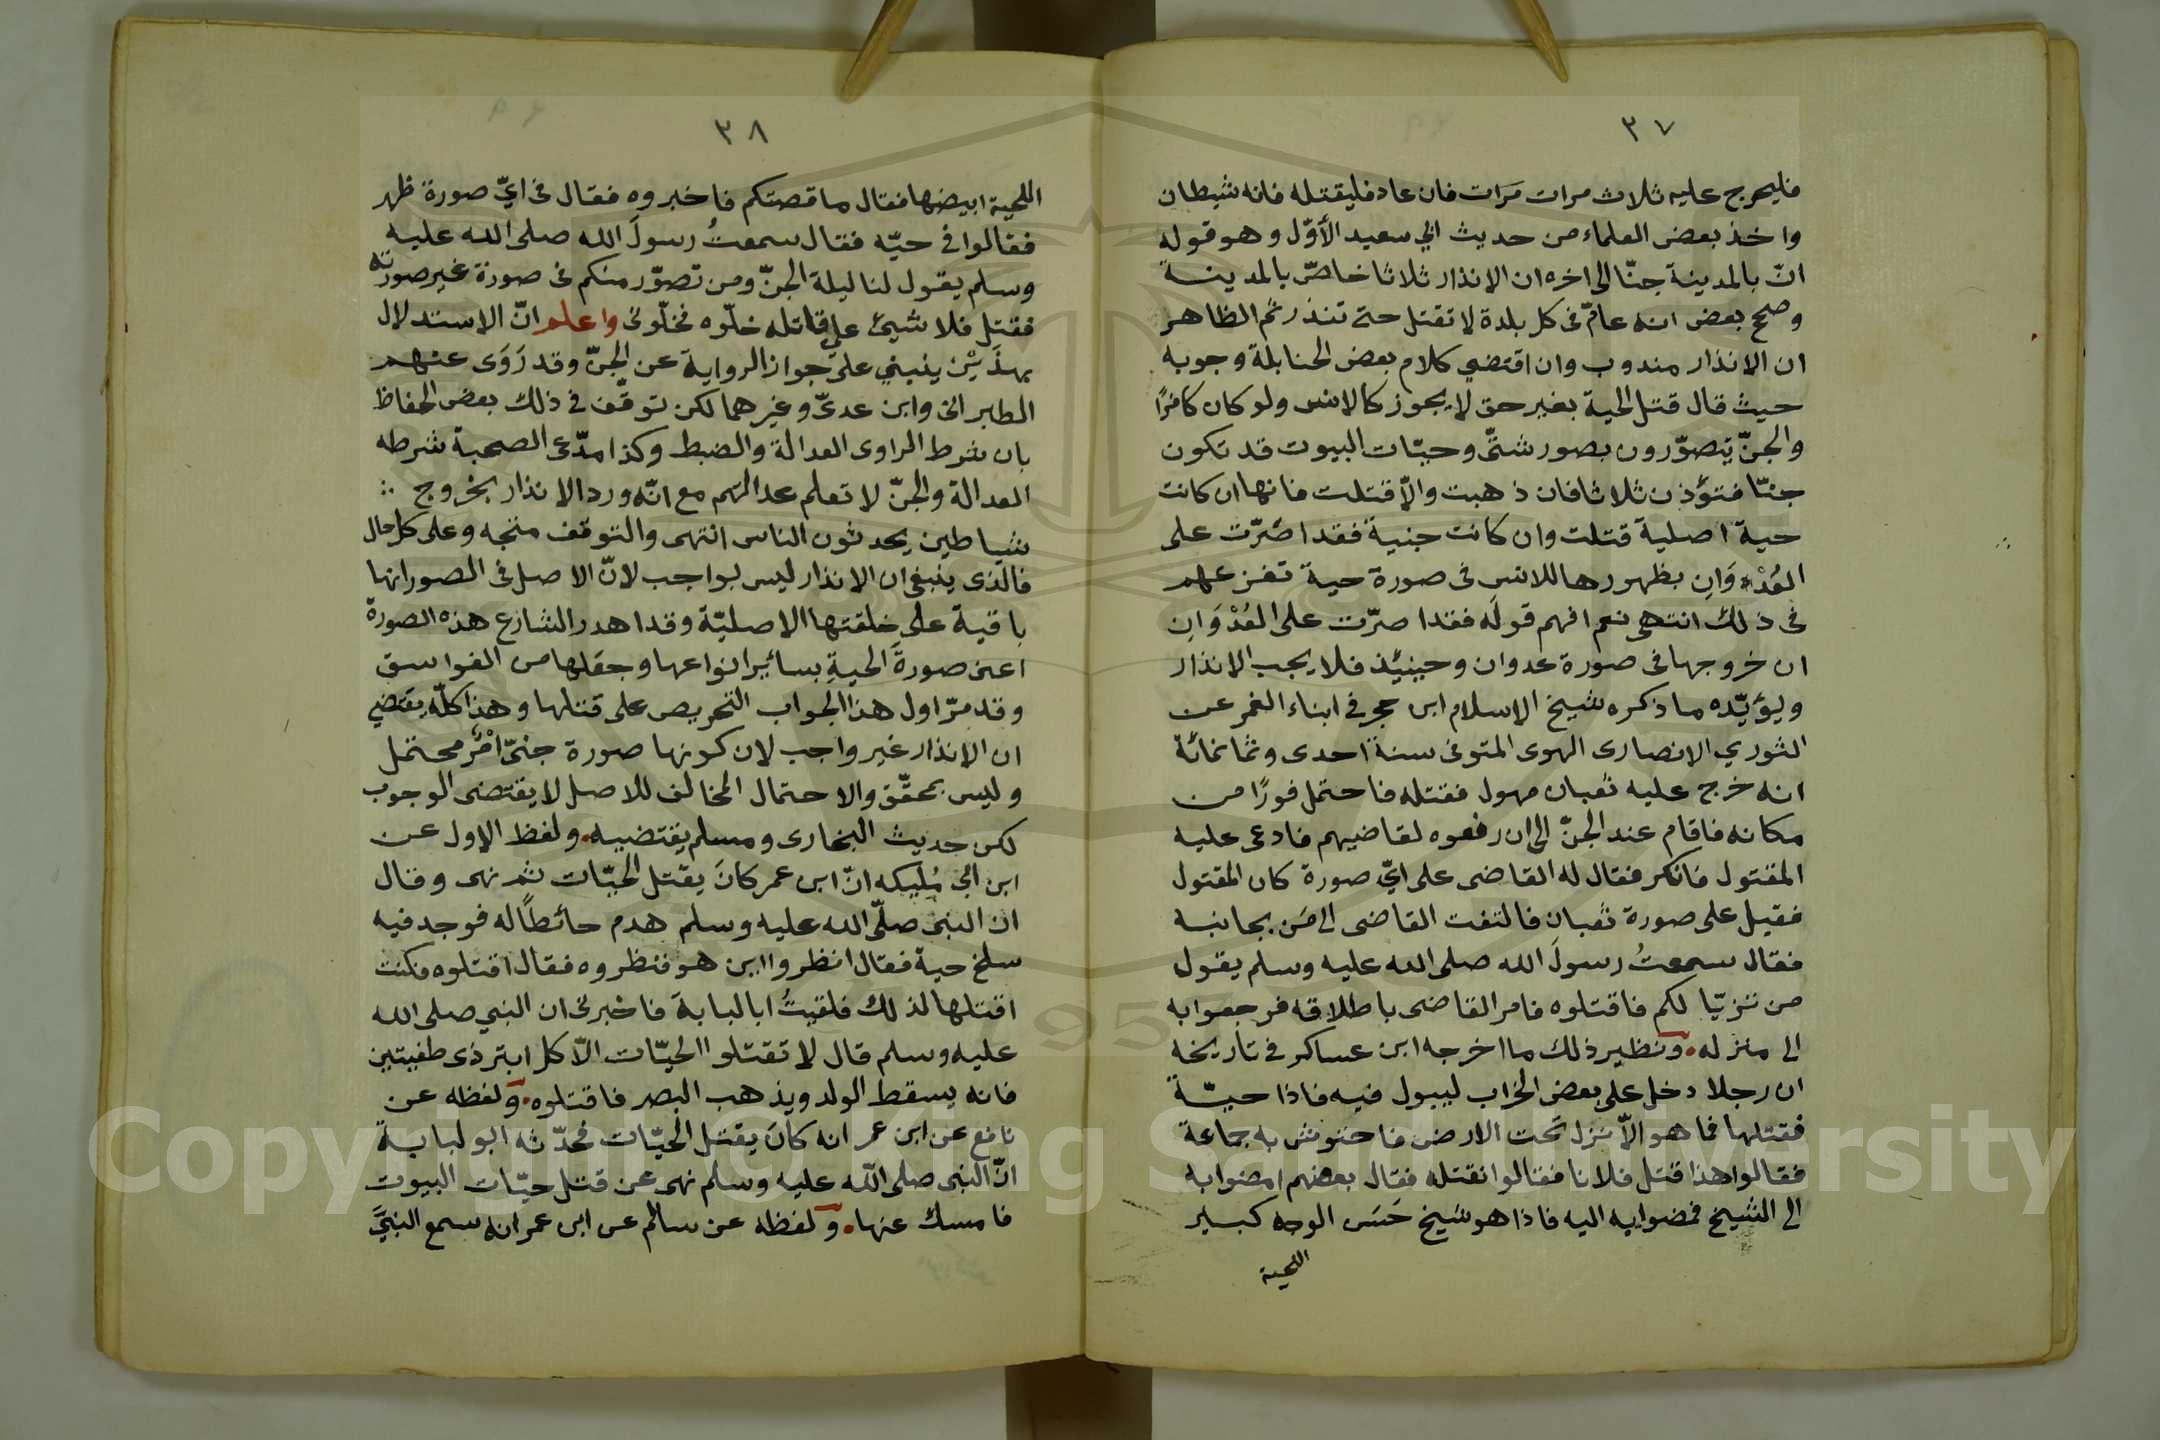 ٣٧
فليحرج عليه ثلاث مرات مرات فان عاد فليقتله فانه شيطان
واخذ بعض العلماء من حديث ابي سعيد الأوّل وهو قوله
انّ بالمدينة جنّا الى اخره ان الانذار ثلاثا خاصّ بالمدينة
وصحح بعض انه عامّ في كل بلدة لا تقتل حتى تنذر ثم الظاهر
ان الانذار مندوب وان اقتضى كلام بعض الحنابلة وجوبه
حيث قال قتل الحية بغير حق لا يجوز كالانس ولو كان كافرًا
والجنّ يتصوّرون بصور شتّى وحيّات البيوت قد تكون
جنّا فتؤذن ثلاثا فان ذهبت والاّ قتلت فانها ان كانت
حية اصلية قتلت وان كانت جنية فقد اصّرت على
العُدْوَان بظهورها للانس في صورة حية تفزعهم
في ذلك انتهى نعم افهم قوله فقد اصرّت على العُدْوَان
ان خروجها في صورة عدوان وحينئذ فلا يجب الانذار
ويؤيّده ما ذكره شيخ الاسلام ابن حجر في ابناء الغمر عن
الثوري الانصارى الهوى المتوفى سنة احدى وثمانمائة
انه خرج عليه ثعبان مهول فقتله فاحتمل فورًا من
مكانه فاقام عند الجنّ الى ان رفعوه لقاضيهم فادعى عليه
المقتول فانكر فقال له القاضى على ايّ صورة كان المقتول
فقيل على صورة ثعبان فالتفت القاضى الى مَن بجانبه
فقال سمعتُ رسولَ الله صلى الله عليه وسلم يقول
من تزيّا لكم فاقتلوه فامر القاضى باطلاقه فرجعوا به
الى منزله. ونظير ذلك ما اخرجه ابن عساكر في تاريخه
ان رجلا دخل على بعض الخراب ليبول فيه فاذا حيّة
فقتلها فما هو الاّ نزل تحت الارض فاحتوش به جماعة
فقالوا هذا قتل فلانا فقالوا نقتله فقال بعضهم امضوا به
الى الشيخ فمضوا به اليه فاذا هو شيخ حَسَن الوجه كبير
اللحية
٣٨
اللحية ابيضها فقال ما قصتكم فاخبروه فقال في ايّ صورة ظهر
فقالوا في حيّه فقال سمعتُ رسولَ الله صلى الله عليه
وسلم يقول لنا ليلة الجنّ ومن تصوّر منكم في صورة غير صورته
فقتل فلا شيئ على قاتله خلّوه فخلّوني واعلم انّ الاستدلال
بهذَيْن ينبني على جواز الرواية عن الجنّ وقد رَوَى عنهم
الطبرانى وابن عدىّ وغيرهما لكن توقّف في ذلك بعض الحفاظ
بان شرط الراوى العدالة والضبط وكذا مدّعى الصحبة شرطه
العدالة والجنّ لا تعلم عدالتهم مع انّه ورد الانذار بخروج
شياطين يحدثون الناس انتهى والتوقف متجه وعلى كل حال
فالذى ينبغى ان الانذار ليس بواجب لانّ الاصل في الصور انها
باقية على خلقتها الاصليّة وقد اهدر الشارع هذه الصورة
اعنى صورةَ الحيةِ بسائر انواعها وجعلها من الفواسق
وقد مرّ اول هذا الجواب التحريص على قتلها وهذا كلّه يقتضي
ان الانذار غير واجب لان كونها صورة جنىّ امْرٌ محتمل
وليس بمحقّق والاحتمال المخالف للاصل لا يقتضى الوجوب
لكن حديث البخارى ومسلم يقتضيه. ولفظ الاول عن
ابن ابى مُليكه انّ ابن عمر كانَ يقتل الحيّات ثم نهى وقال
ان النبى صلّى الله عليه وسلم هدم حائطًا له فوجد فيه
سلخ حية فقال انظروا اين هو فنظروه فقال اقتلوه فكنت
اقتلها لذلك فلقيتُ ابا لبابةَ فاخبرنى ان النبي صلى الله
عليه وسلم قال لا تقتلوا الحيّات الاّ كل ابتر ذى طفيتين
فانه يسقط الولد ويذهب البصر فاقتلوه. ولفظه عن
نافع عن ابن عمر انه كانَ يقتل الحيّات فحدّثه ابو لبابة
انّ النبى صلى الله عليه وسلم نهى عن قتل حيّات البيوت
فامسك عنها. ولفظه عن سالم عن ابن عمر انه سمع النبيَّ
Copyright © King Saud University